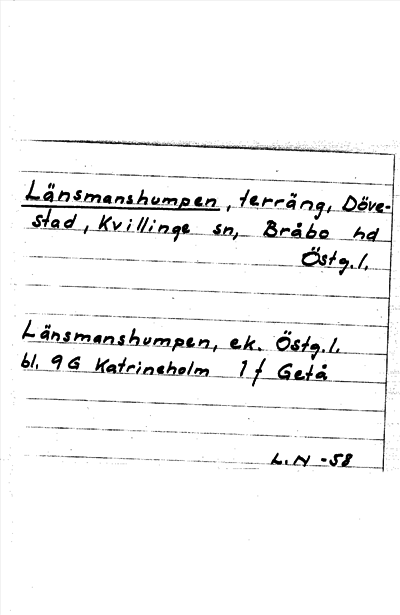 Länsmanshumpen, terräng, Döve-
stad, Kvillinge sn, Bråbo hd
Östg.l.
Länsmanshumpen, ek. Östg.l.
bl. 9G Katrineholm 1f Getå
L.N -58